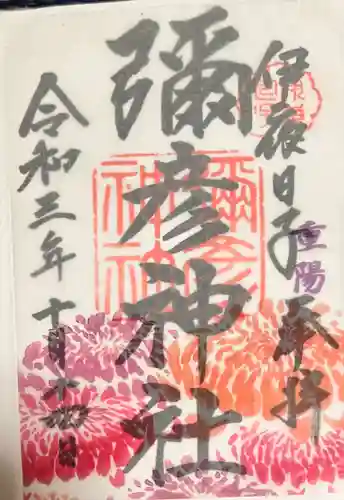 伊夜日子
重陽
奉拝
彌彦神社
令和三年十月十四日
彌彦
神社